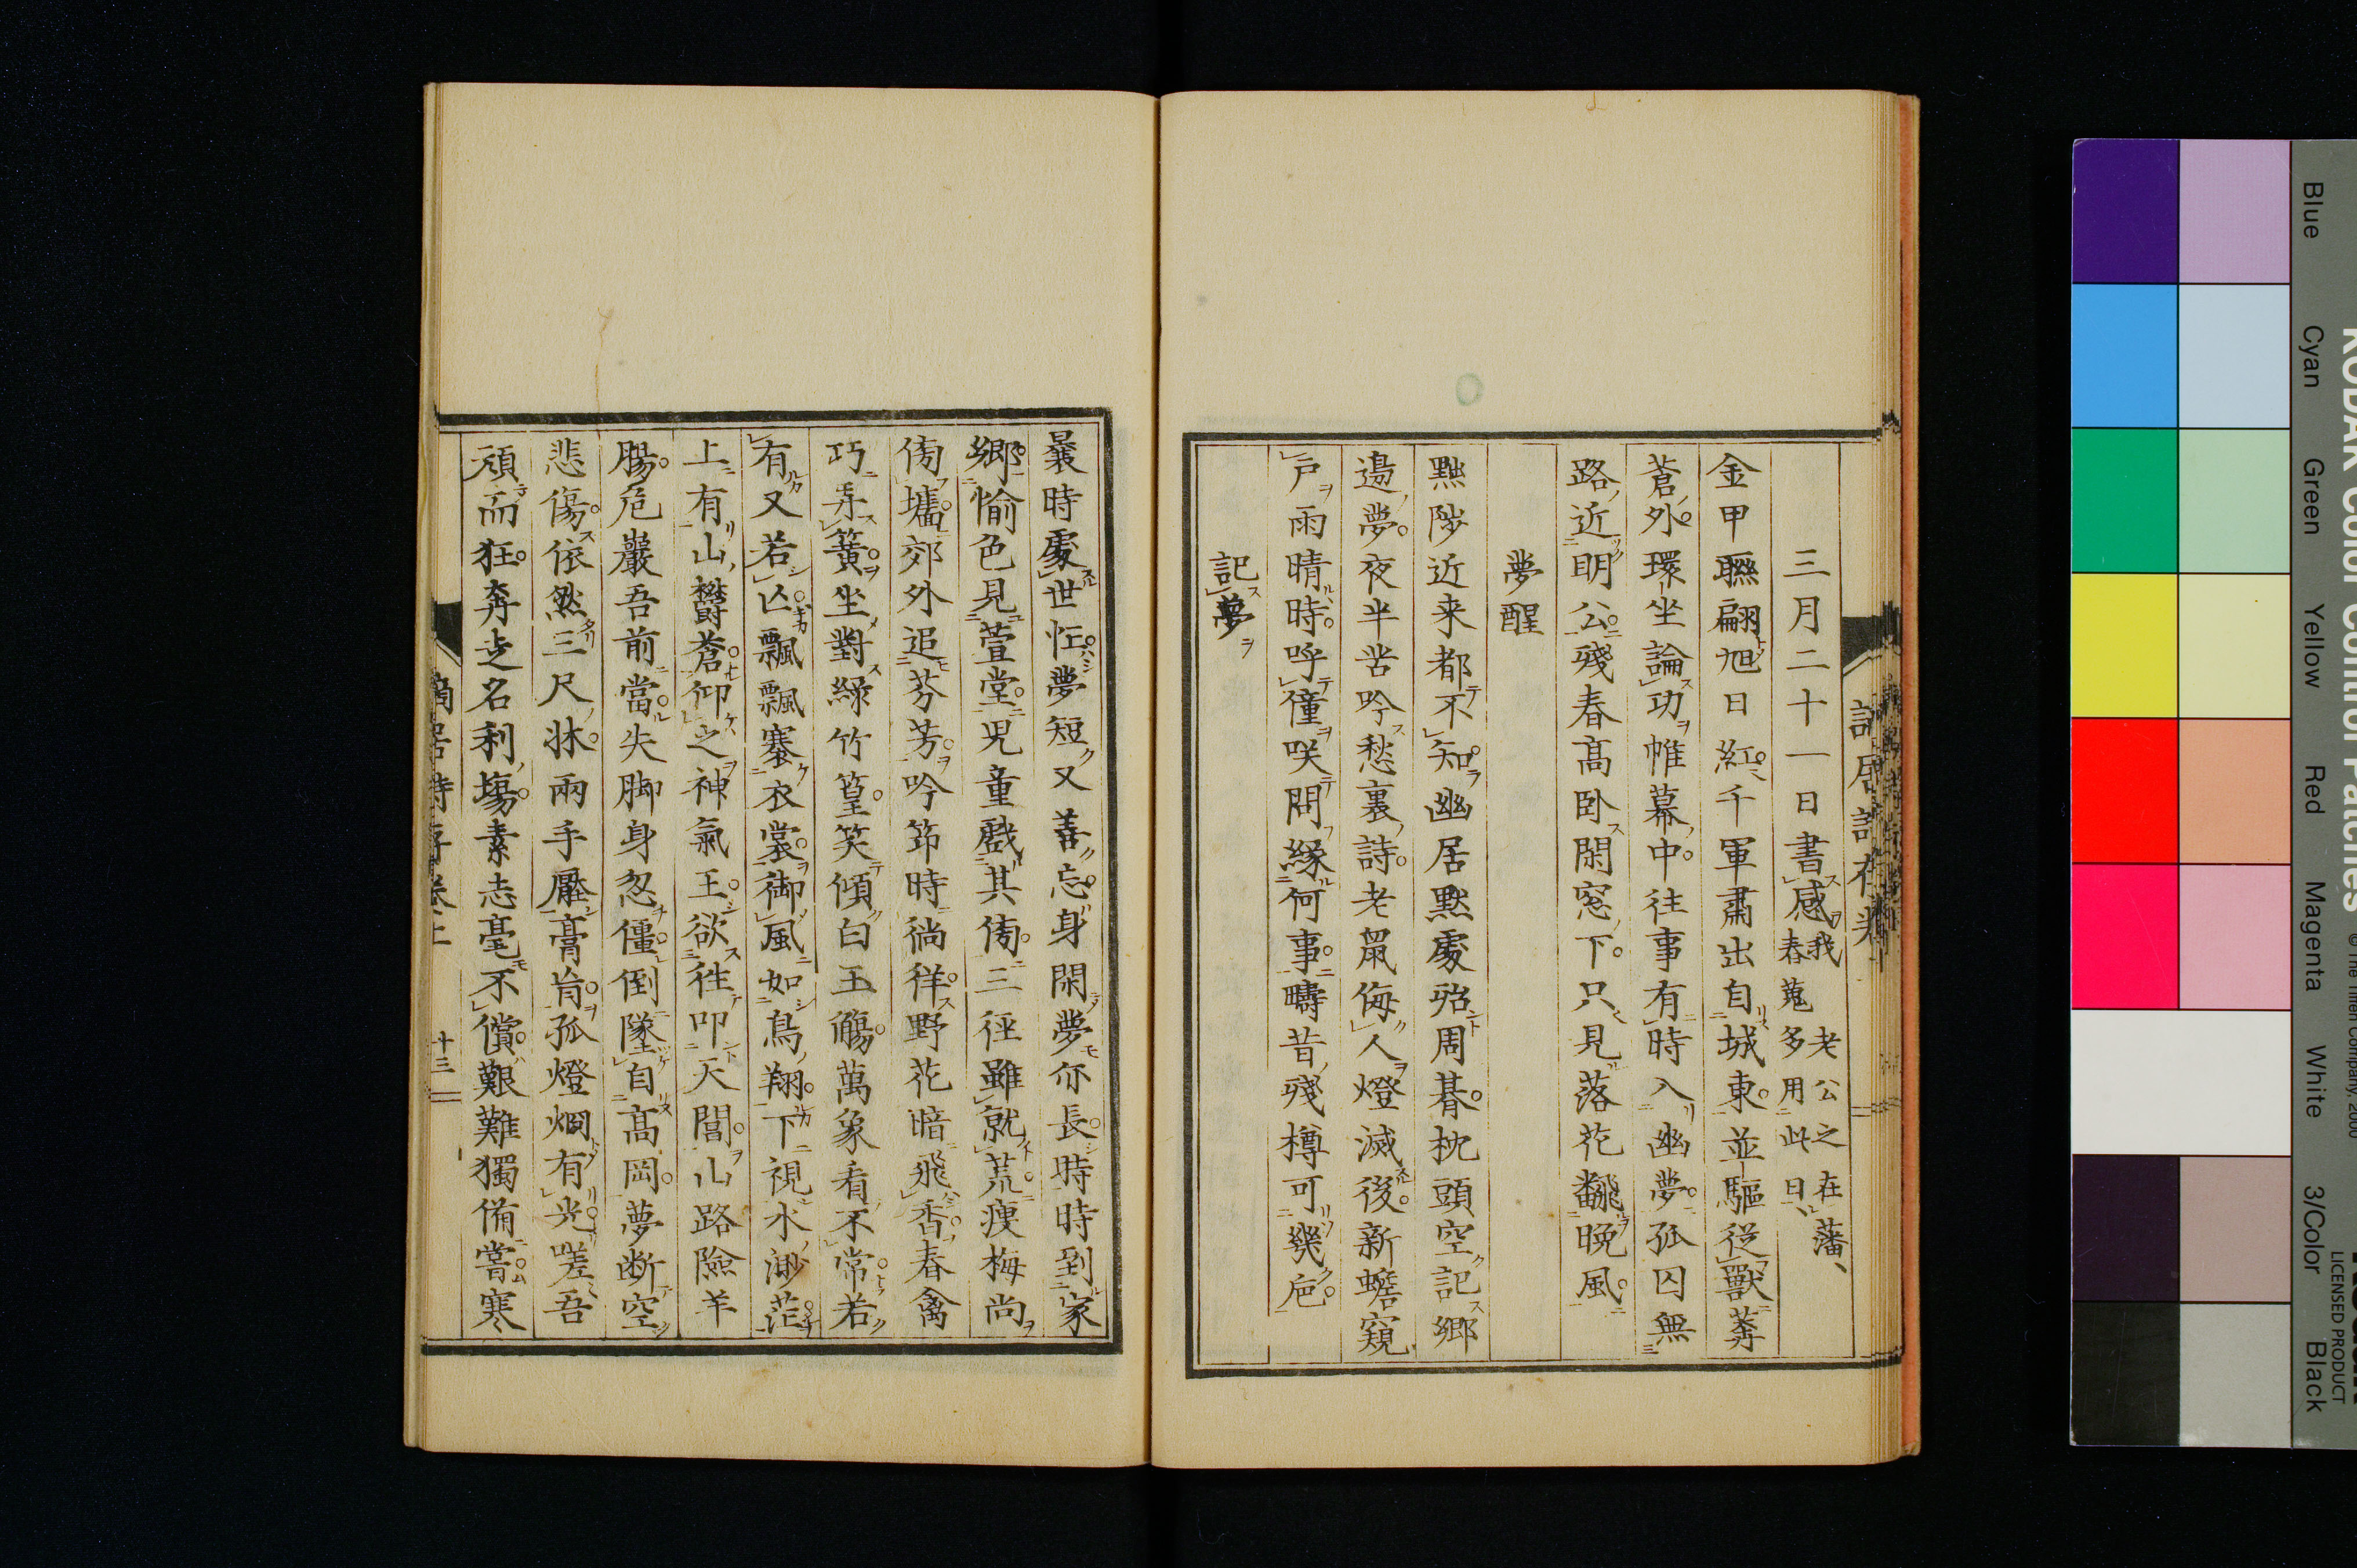 三月二十一日書感 我老公之在藩、春蒐多用此日、
金甲聯翩旭日紅千軍肅出自城東並驅從獸莾
蒼外環坐論功帷幕中往事有時入幽夢孤囚無
路近明公殘春高卧閑窓下只見落花飜晩風
夢醒
黜陟近来都不知幽居默處殆周朞枕頭空記郷
邉夢夜半苦吟愁裏詩老鼠侮人燈滅後新蟾窺
戸雨晴時呼僮咲問緣何事疇昔殘樽可幾巵
記夢
曩時處世恠夢短又善忘身閑夢亦長時時到家
郷愉色見萱堂児童戲其傍三徑雖就荒痩梅尚
傍墻郊外追芬芳吟笻時徜徉野花暗飛香春禽
巧弄簧坐對綠竹篁笑傾白玉觴萬象看不常若
有又若亾飄飄褰衣裳御風如鳥翔下視水渺茫
上有山欝蒼仰之神氣王欲徃叩天閶山路險羊
腸危巖吾前當失脚身忽僵倒墜自高岡夢断空
悲傷依然三尺牀兩手壓膏肓孤燈烱有光嗟吾
頑而狂奔走名利場素志毫不償艱難獨備嘗寒
十三
Blue
Cyan
Green
Yellow
Red
Magenta
White
3/Color
Black
KODAK Color Control Patches
© The Tiffen Company, 2000
LICENSED PRODUCT